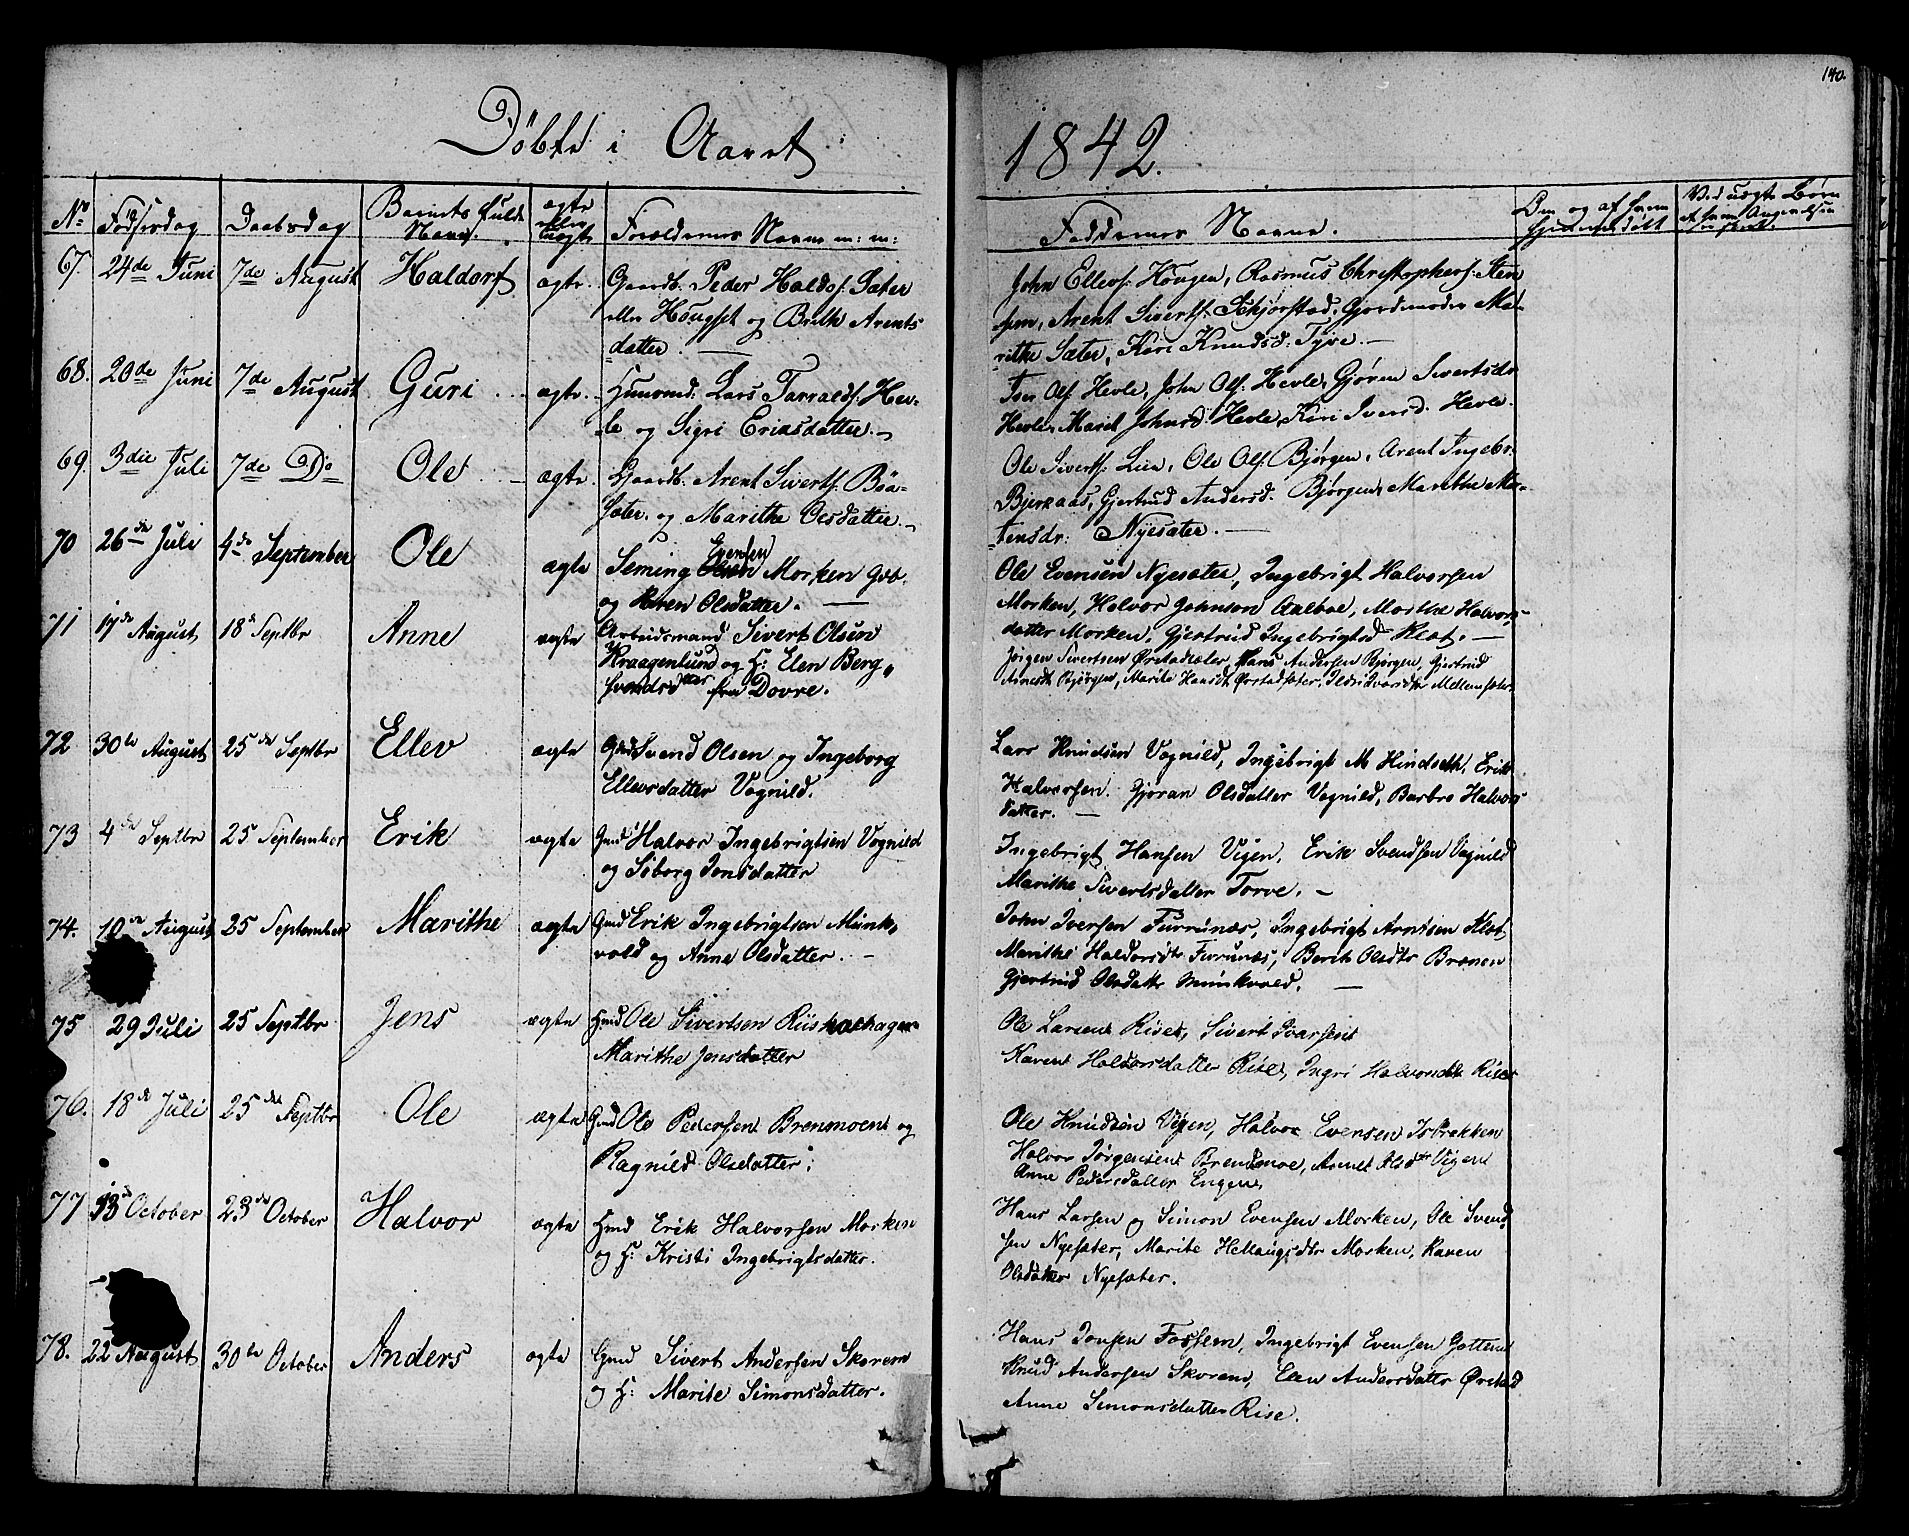 140.
Döbte i Aaret 1842.
No Fødselsdag Daabsdag Barnets fulde Navn. ægte eller uægte Forældrenes Navne m: m: Faddernes Navne.
67. 24de Juni 7de August Haldorf ægte. Gaardb. Peder Haldorf: Sæter
eller Hougset og Brith Arents
datter.
John Ellevs: Hougen, Rasmus Christophers: Sten
Arent Siverts: Skjørstad, Gjordemoder Ma-
rithe Sæter, Kari Knudsd: Tyve.
68. 20de Juni 7de August Guri ægte. Huusmd: Lars Tarralds: Hev-
le og Sigri Eriksdatter.
Tore Ols: Hevle, John Ols: Hevle, Gjøren Sivertsdr
Hevle, Marit Johnsd: Hevle, Kari Iversd: Hevle.
69. 3die Juli 7de Do Ole ægte. Gaardb. Arent Siverts: Bøa-
sæter og Marithe Olsdatter.
Ole Siverts: Lien, Ole Ols: Bjørgen, Arent Ingebr:
Bjerkaas, Gjertrud Andersd: Bjørgen, Marithe Mor-
tensdr: Nyesæter.
70 26de Juli 4de September Ole ægte Seming Evensen Morken Gdb.
og Karen Olsdatter.
Ole Evensen Nyesæter, Ingebrigt Halvorsen
Morken, Halvor Johnson Aalboe, Marthe Halvors
datter Morken, Gjertrud Ingebrigtsd Klæt.
71 17de August 18de Septbr Anne ægte Arbeidsmand Sivert Olsen
Kraagenlund og H: Elen Berg-
svendsdatter fra Dovre.
Jörgen Sivertsen Ørstadsæter, Hans Andersen Bjørgen, Gjertrud
Arnesdt Bjørgen, Marite Hansdt Ørstadsæter, Ildri Ivarsdtr Mellemsæter.
72 30te August 25de Septbr Ellev ægte Gmd Svend Olsen og Ingeborg
Ellevsdatter Vognild.
Lars Knudsen Vognild, Ingebrigt M Hindseth, Erik
Halvorsen. Gjøran Olsdatter Vognild, Barbro Halvors
datter.
73 4de Septbr 25 September Erik ægte Gmd Halvor Ingebrigtsen Vognild
og Siborg Jonsdatter
Ingebrigt Hansen Vigen, Erik Svendsen Vognild
Marithe Sivertsdatter Torve.
74. 10de August 25 September Marithe ægte Gmd Erik Ingebrigtsen Munk-
vold og Anne Olsdatter.
John Iversen Furrunæs, Ingebrigt Arntsen Klæt,
Marithe Haldorsdtr Furrunæs, Berit Olsdtr Brænen
Gjertrud Olsdattr Munkvold.
75 29 Juli 25 Septbr Jens ægte Hmd Ole Sivertsen
Marithe Jensdatter
Ole Larsen Rise, Sivert Ivarsen
Karen Haldorsdatter Rise, Ingri Halvorsdtr Rise
76. 18de Juli 25de Septbr Ole ægte Gmd Ole Pedersen Brenmoen og
Ragnild Olsdatter.
Ole Knudsen Vigen, Halvor Evensen Isbrekken
Halvor Jörgensen Brendmoe, Olsdtr Vigen
Anne Pedersdatter Engen.
77 13de October 23de October Halvor ægte Hmd Erik Halvorsen Morken
og H: Kristi Ingebrigtsdatter.
Hans Larsen og Simon Evensen Morken, Ole Svend
sen Nyesæter, Marite Hellaugsdtr Morken, Karen
Olsdatter Nyesæter.
78. 22 August 30te October Anders ægte Gmd Sivert Andersen Skorem
og H: Marite Simonsdatter.
Hans Jonsen Fossem, Ingebrigt Evensen Gotten
Knud Andersen Skorem, Elen Andersdatter Ørstad
Anne Simonsdatter Rise.